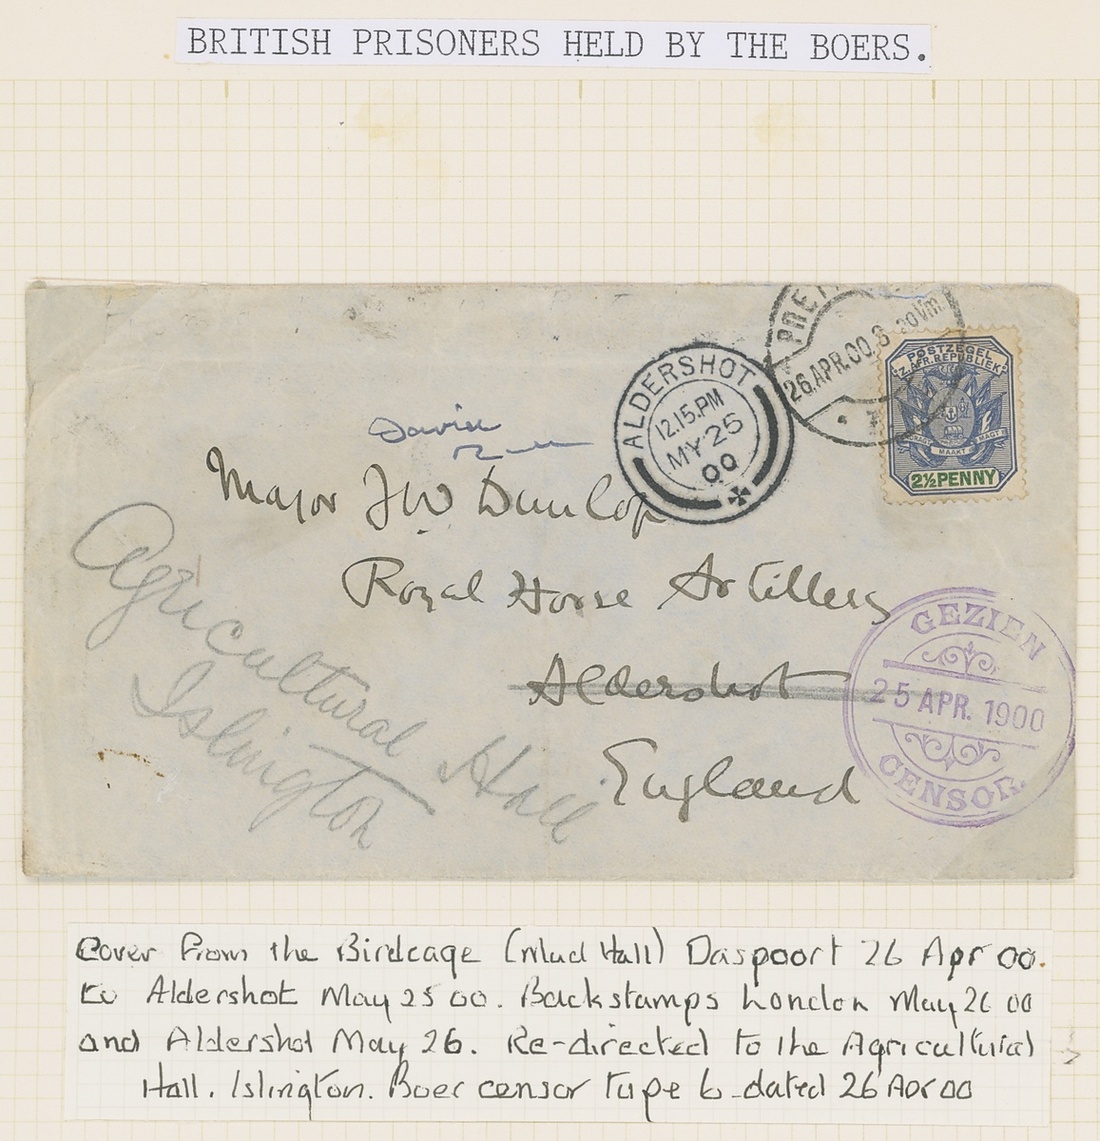 BRITISH PRISONERS HELD BY THE BOERS.
PRET
26.APR.00. 8 30Vm.
ALDERSHOT
12.15.PM
MY 25
00
POSTZEGEL
Z.AFR.REPUBLIEK
MAAKT MAGT
2½PENNY
Major J W Dunlop
Royal Horse Artillery
Aldershot
England
Agricultural Hall
Islington
GEZIEN
25 APR. 1900
CENSOR.
Cover from the Birdcage (Mud Hall) Daspoort 26 Apr 00.
to Aldershot May 25 00. Backstamps London May 26 00
and Aldershot May 26. Re-directed to the Agricultural
Hall. Islington. Boer censor type 6 dated 26 Apr 00